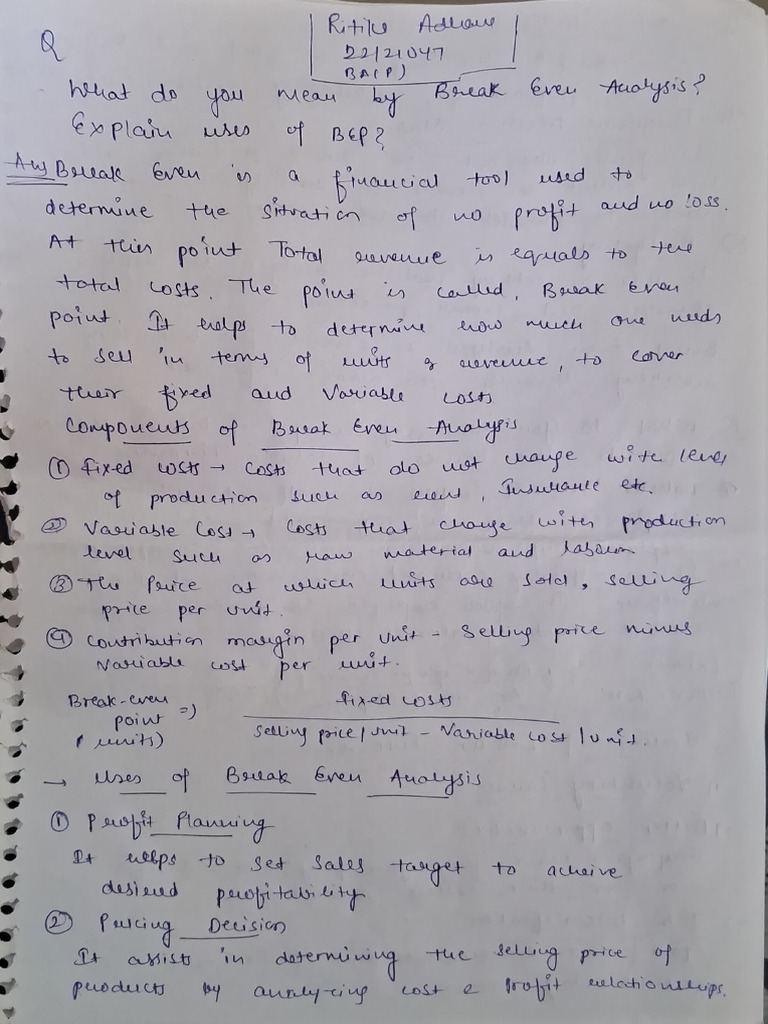 Q
Ritika
22/21047
BA(P)
What do you mean by Break Even Analysis?
Explain uses of BEP?
Ans Break Even is a financial tool used to
determine the situation of no profit and no loss.
At this point Total revenue is equals to the
total costs. The point is called, Break Even
point. It helps to determine how much one needs
to sell in terms of units & revenue, to cover
their fixed and Variable costs
Components of Break Even Analysis
① fixed costs → costs that do not change with level
of production such as rent, Insurance etc.
② Variable Cost → Costs that change with production
level such as raw material and labour
③ The Price at which units are sold, selling
price per unit.
④ Contribution margin per unit - Selling price minus
Variable cost per unit.
Break-even
point
(units) => fixed costs
Selling price/unit - Variable cost/unit.
→ Uses of Break Even Analysis
① Profit Planning
It helps to set sales target to acheive
desired profitability
② Pricing Decision
It assists in determining the selling price of
products by analyzing cost & Profit relationships.